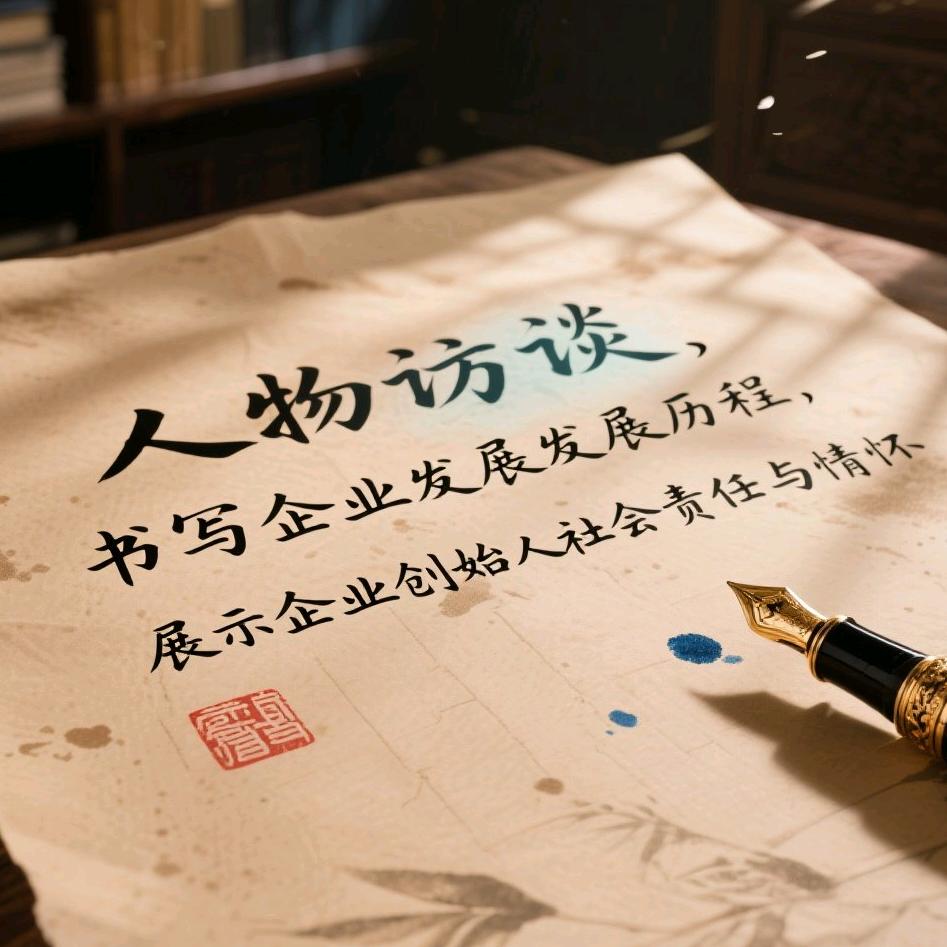 人物访谈，
书写企业发展发展历程，
展示企业创始人社会责任与情怀